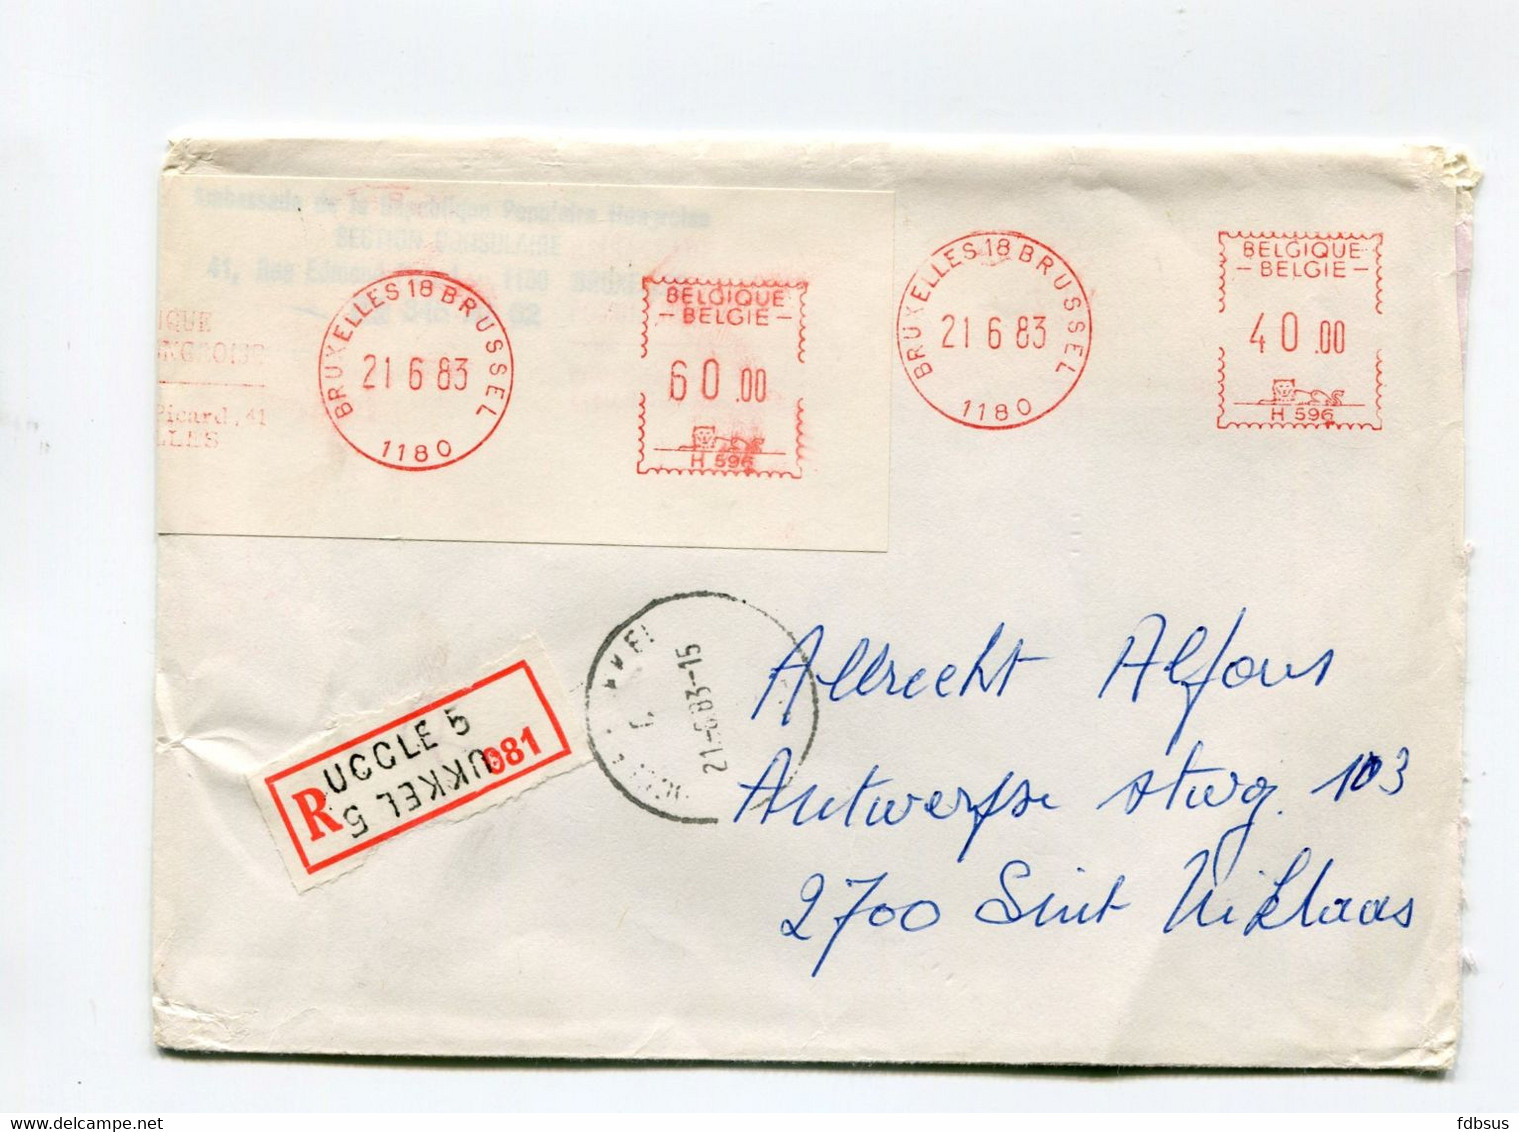 Ambassade de la République Populaire Hongroise
SECTION CONSULAIRE
41, Rue Edmond Picard, 1180 BRUXELLES
BRUXELLES 18 BRUSSEL
21 6 83
1180
BELGIQUE
- BELGIE -
60.00
H 596
Picard, 41
BRUXELLES 18 BRUSSEL
21 6 83
1180
BELGIQUE
- BELGIE -
40.00
H 596
R
UCCLE 5
UKKEL 5
081
21-6-83-15
Albrecht Alfons
Antwerpse stwg. 103
2700 Sint Niklaas
delcampe.net
fdbsus